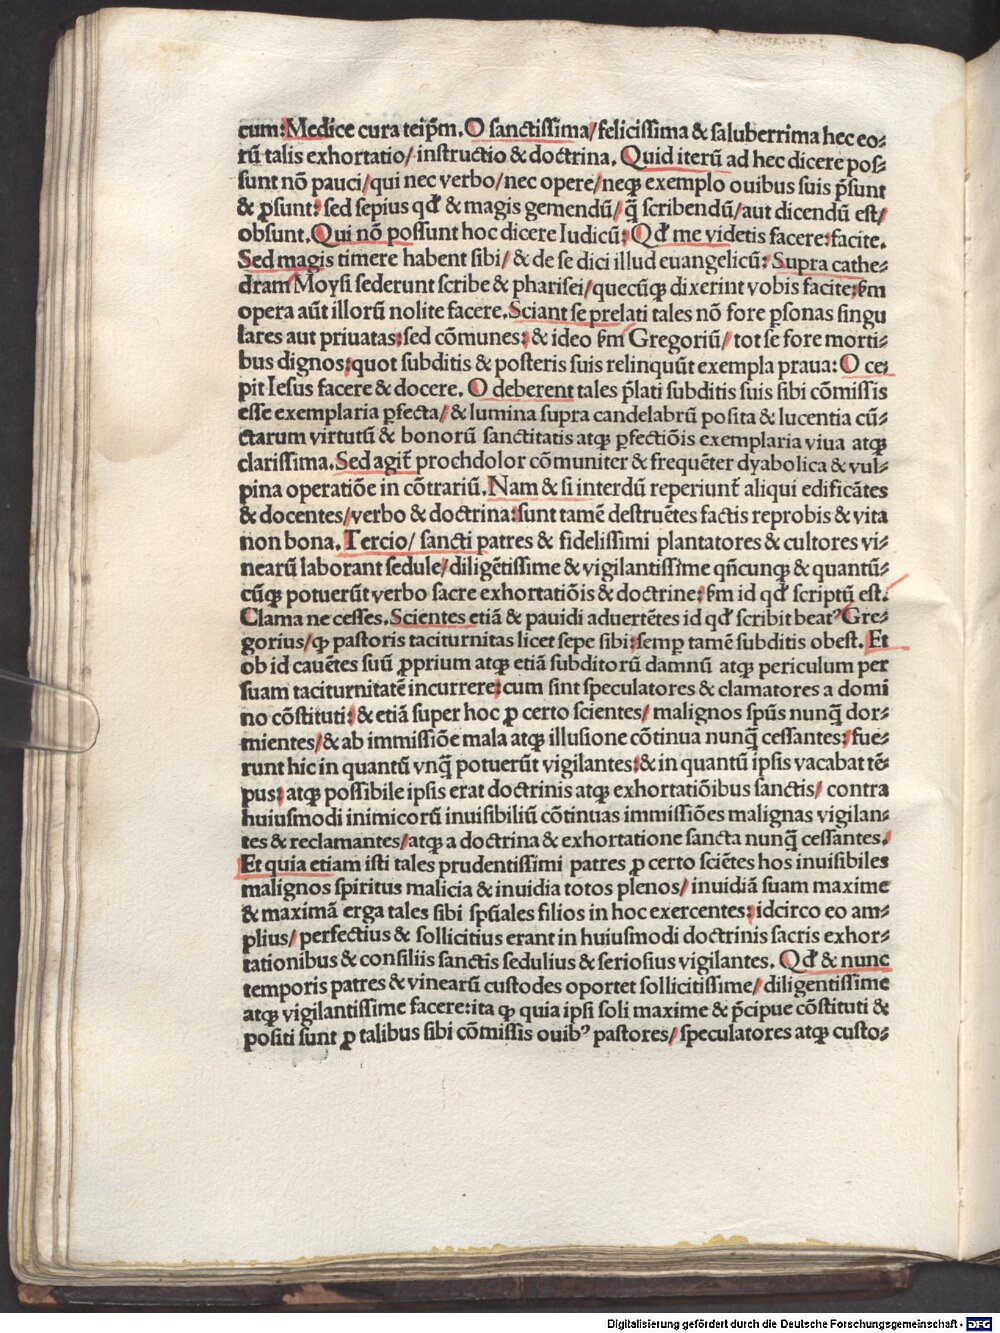 cum: Medice cura teip̄m. O sanctissima/ felicissima & saluberrima hec eo⸗
rū talis exhortatio/ instructio & doctrina. Quid iterū ad hec dicere pos⸗
sunt nō pauci/ qui nec verbo/ nec opere/ neqꝫ exemplo ouibus suis p̄sunt
& ꝓsunt: sed sepius qđ & magis gemendū/ q̄ scribendū/ aut dicendū est/
obsunt. Qui nō possunt hoc dicere Iudicū: Qđ me videtis facere: facite.
Sed magis timere habent sibi/ & de se dici illud euangelicū: Supra cathe⸗
dram Moysi sederunt scribe & pharisei/ quecūqꝫ dixerint vobis facite: s̄m
opera aūt illorū nolite facere. Sciant se prelati tales nō fore ꝑsonas singu
lares aut priuatas: sed cōmunes: & ideo s̄m Gregoriū/ tot se fore morti⸗
bus dignos: quot subditis & posteris suis relinquūt exempla praua: O ce⸗
pit Iesus facere & docere. O deberent tales p̄lati subditis suis sibi cōmissis
esse exemplaria ꝑfecta/ & lumina supra candelabrū posita & lucentia cū⸗
ctarum virtutū & bonorū sanctitatis atqꝫ ꝑfectiōis exemplaria viua atqꝫ
clarissima. Sed agit̄ prochdolor cōmuniter & frequēter dyabolica & vul⸗
pina operatiōe in cōtrariū. Nam & si interdū reperiunt̄ aliqui edificātes
& docentes/ verbo & doctrina: sunt tamē destruētes factis reprobis & vita
non bona. Tercio/ sancti patres & fidelissimi plantatores & cultores vi⸗
nearū laborant sedule/ diligētissime & vigilantissime qn̄cunqꝫ & quantū⸗
cūqꝫ potuerūt verbo sacre exhortatiōis & doctrine: s̄m id qđ scriptū est.
Clama ne cesses. Scientes etiā & pauidi aduertētes id qđ scribit beatꝰ Gre⸗
gorius/ ꝙ pastoris taciturnitas licet sepe sibi: semꝑ tamē subditis obest. Et
ob id cauētes suū ꝓprium atqꝫ etiā subditorū damnū atqꝫ periculum per
suam taciturnitatē incurrere: cum sint speculatores & clamatores a domi
no cōstituti: & etiā super hoc ꝓ certo scientes/ malignos sp̄us nunq̄ dor⸗
mientes/ & ab immissiōe mala atqꝫ illusione cōtinua nunq̄ cessantes: fue⸗
runt hic in quantū vnq̄ potuerūt vigilantes: & in quantū ipsis vacabat tē⸗
pus: atqꝫ possibile ipsis erat doctrinis atqꝫ exhortatiōibus sanctis/ contra
huiusmodi inimicorū inuisibiliū cōtinuas immissiōes malignas vigilan⸗
tes & reclamantes/ atqꝫ a doctrina & exhortatione sancta nunq̄ cessantes.
Et quia etiam isti tales prudentissimi patres ꝓ certo sciētes hos inuisibiles
malignos spiritus malicia & inuidia totos plenos/ inuidiā suam maxime
& maximā erga tales sibi sp̄uales filios in hoc exercentes: idcirco eo am⸗
plius/ perfectius & sollicitius erant in huiusmodi doctrinis sacris exhor⸗
tationibus & consiliis sanctis sedulius & seriosius vigilantes. Qđ & nunc
temporis patres & vinearū custodes oportet sollicitissime/ diligentissime
atqꝫ vigilantissime facere: ita ꝙ quia ipsi soli maxime & p̄cipue cōstituti &
positi sunt ꝓ talibus sibi cōmissis ouibꝰ pastores/ speculatores atqꝫ custo⸗
Digitalisierung gefördert durch die Deutsche Forschungsgemeinschaft - DFG